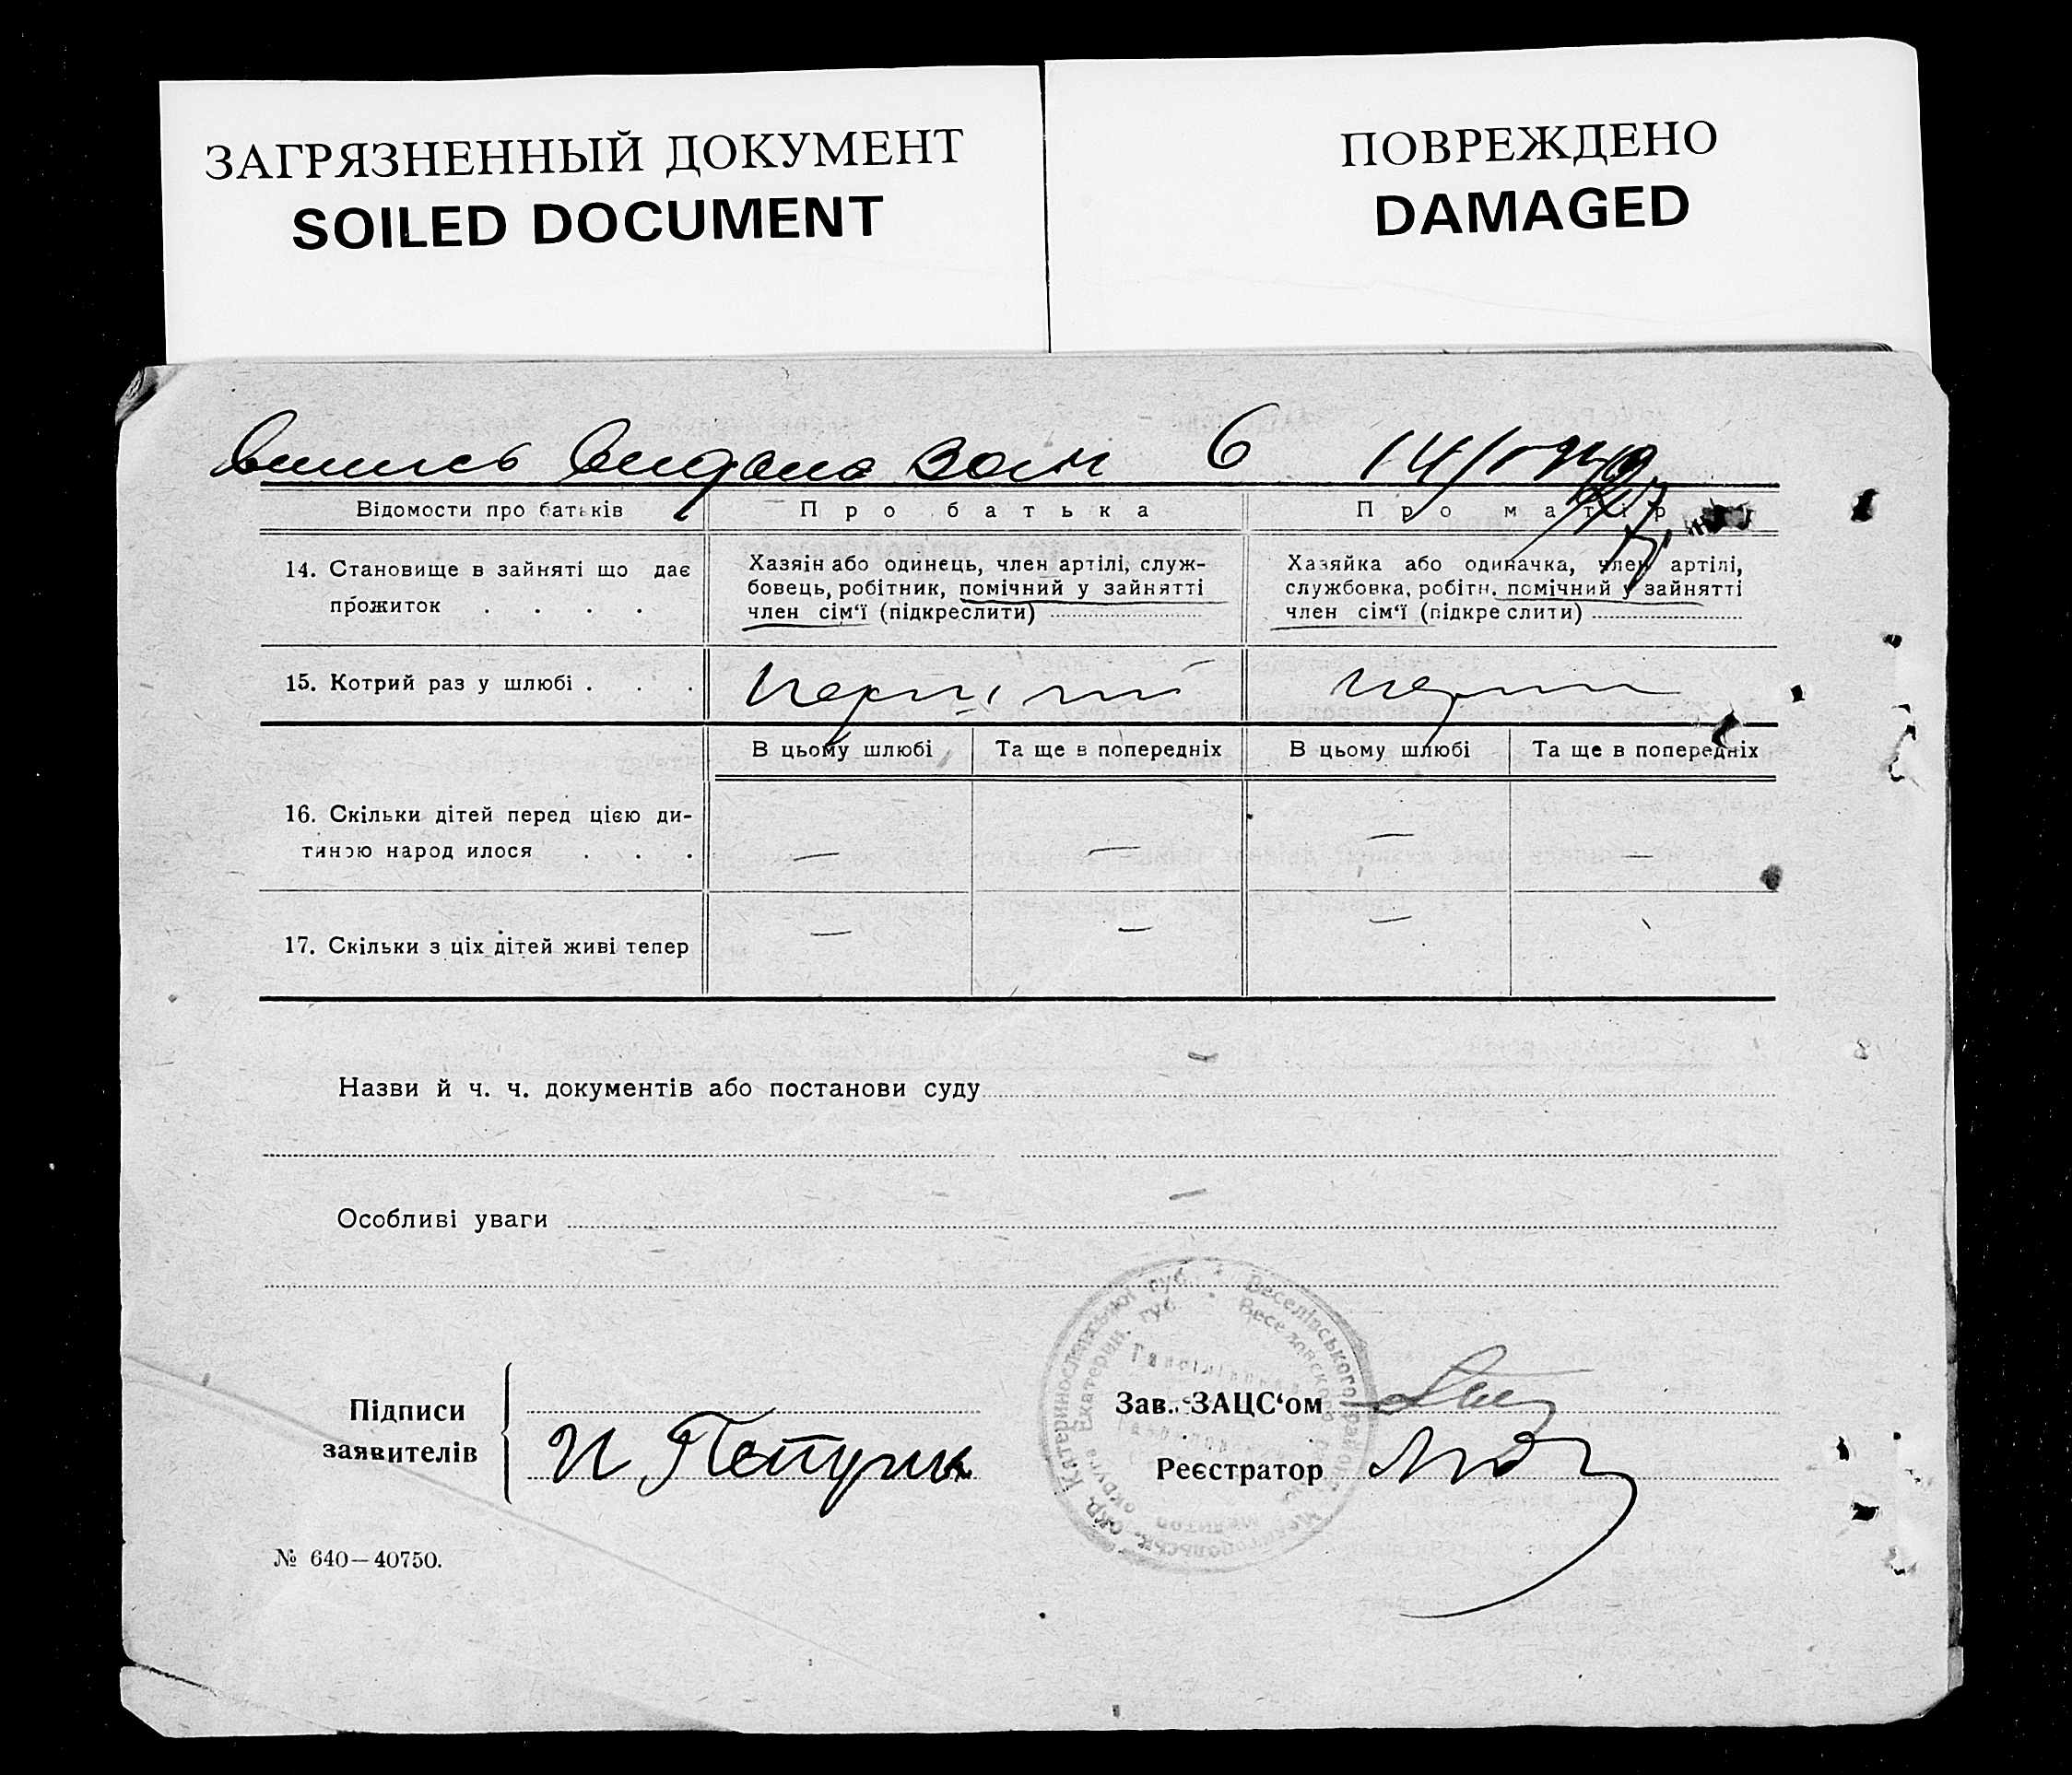 ЗАГРЯЗНЕННЫЙ ДОКУМЕНТ
SOILED DOCUMENT
ПОВРЕЖДЕНО
DAMAGED
6 14/
Відомости про батьків
Про батька
Про матір
14. Становище в зайняті що дає
прожиток . . . .
Хазяін або одинець, член артілі, служ-
бовець, робітник, помічний у зайнятті
член сім‘ї (підкреслити)
Хазяйка або одиначка, член артілі,
службовка, робітн. помічний у зайнятті
член сім‘ї (підкре слити)
15. Котрий раз у шлюбі . . .
В цьому шлюбі
Та ще в попередніх
В цьому шлюбі
Та ще в попередніх
16. Скільки дітей перед цією ди-
тиною народ илося . . .
— — — —
17. Скільки з ціх дітей живі тепер
— — —
Назви й ч. ч. документів або постанови суду
Особливі уваги
Підписи
заявителів
Зав. ЗАЦС‘ом
Реєстратор
Катеринославської губ. * Веселівського район.
Екатерин. губ. * Веселовского
№ 640—40750.